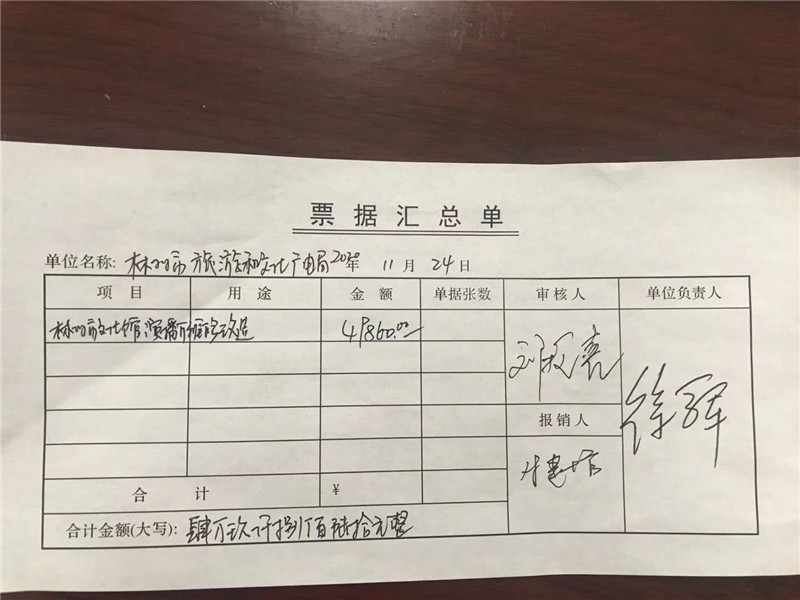 票据汇总单
单位名称: 林州市旅游和文化广电局2020年 11月 24日
项目 用途 金额 单据张数 审核人 单位负责人
林州市文化馆演播厅维修改造 49860.00
报销人
徐军
合计 ¥
合计金额(大写): 肆万玖仟捌佰陆拾元整